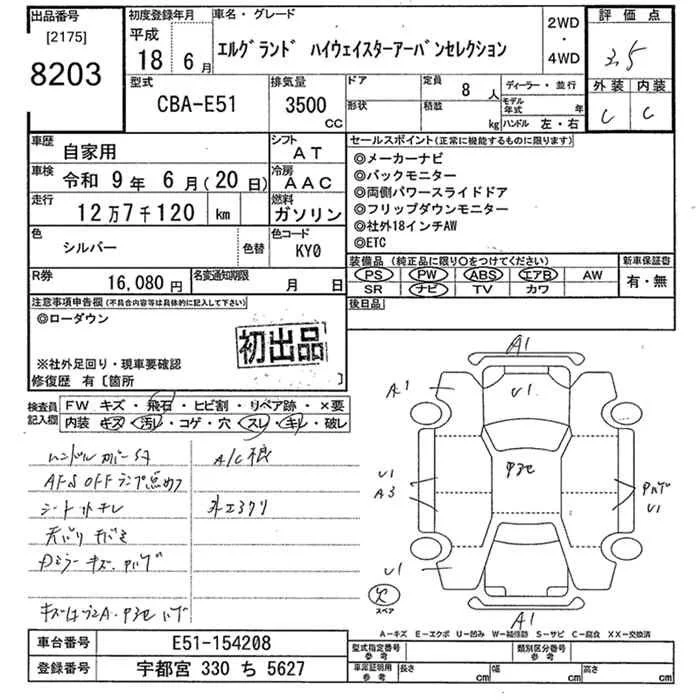 出品番号
[2175]
8203
初度登録年月
平成
18 6月
車名・グレード
エルグランド ハイウェイスターアーバンセレクション
2WD
・
4WD
評価点
3.5
外装 内装
C C
型式
CBA-E51
排気量
3500
CC
ドア
形状
定員
8人
積載
kg
ディーラー・並行
モデル年式 年
ハンドル 左・右
車歴
自家用
シフト
AT
車検
令和 9年 6月(20日)
冷房
AAC
走行
12万7千120 km
燃料
ガソリン
色
シルバー
色替
色コード
KY0
R券
16,080円
名変通知期限
月 日
セールスポイント(正常に機能するものに限ります)
◎メーカーナビ
◎バックモニター
◎両側パワースライドドア
◎フリップダウンモニター
◎社外18インチAW
◎ETC
装備品(純正品に限り○をつけてください)
新車保証書
PS PW ABS エアB AW
SR ナビ TV カワ
有・無
後日品
注意事項申告欄(不具合内容等は具体的に記入して下さい)
◎ローダウン
初出品
※社外足回り・現車要確認
修復歴 有〔箇所 〕
検査員記入欄
FW キズ・飛石・ヒビ割・リペア跡・×要
内装 キズ・汚レ・コゲ・穴・スレ・キレ・破レ
ハンドルカバーSZ
A/C根
AFS OFFランプ点め
シートットレ
キズ
A1
A1
U1
U1
A3
U1
U1
A1
スペア
A-キズ E-エクボ U-凹み W-補修跡 S-サビ C-腐食 XX-交換済
車台番号
E51-154208
登録番号
宇都宮 330 ち 5627
型式指定番号
参考
類別区分番号
参考
車庫証明用
参考
長さ cm
幅 cm
高さ cm